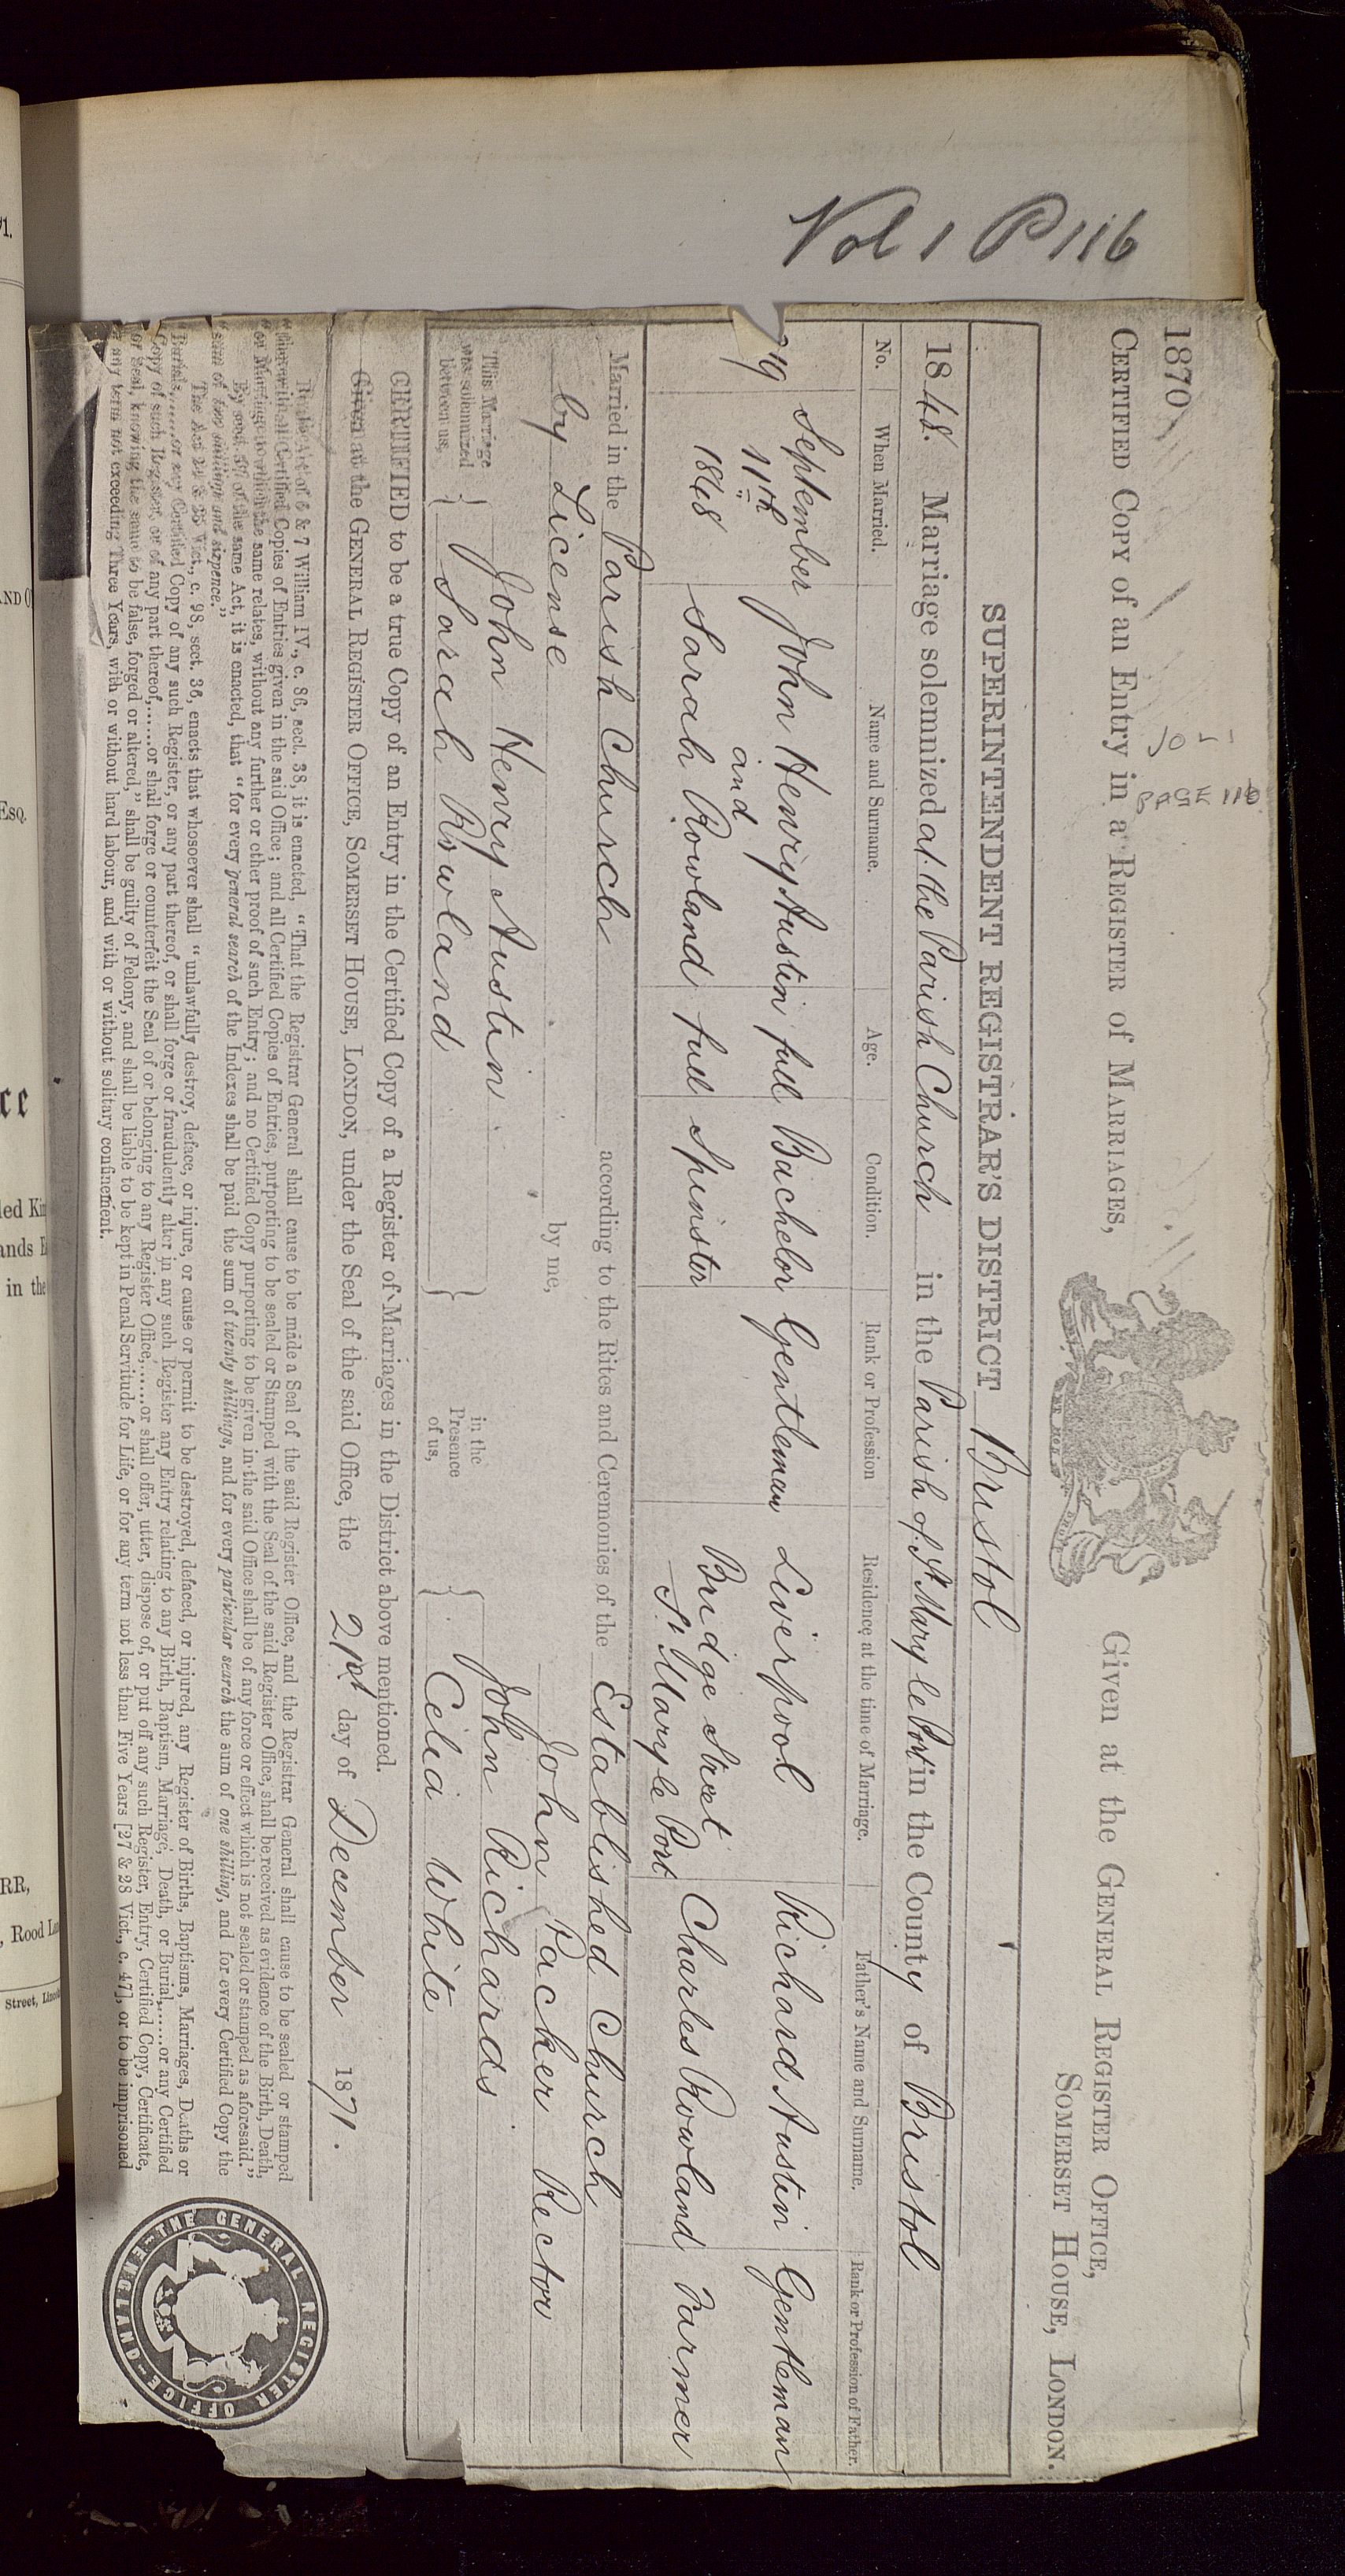 Vol 1 P 116
1870
PAGE 116
CERTIFIED COPY of an ENTRY in a REGISTER of MARRIAGES,
Given at the GENERAL REGISTER OFFICE,
SOMERSET HOUSE, LONDON.
SUPERINTENDENT REGISTRAR'S DISTRICT Bristol
1848. Marriage solemnized at the Parish Church in the Parish of St Mary le Port in the County of Bristol
No. When Married. Name and Surname. Age. Condition. Rank or Profession Residence at the time of Marriage. Father's Name and Surname. Rank or Profession of Father.
September John Henry Austin full Bachelor Gentleman Liverpool Richard Austin Gentleman
11th and
1848 Sarah Rowland full Spinster Bridge Street St Mary le Port Charles Rowland Farmer
Married in the Parish Church according to the Rites and Ceremonies of the Established Church
by License by me, John Packer Rector
This Marriage was solemnized between us, John Henry Austin in the Presence of us, John Richards
Sarah Rowland Celia White
CERTIFIED to be a true Copy of an Entry in the Certified Copy of a Register of Marriages in the District above mentioned.
Given at the GENERAL REGISTER OFFICE, SOMERSET HOUSE, LONDON, under the Seal of the said Office, the 21st day of December 1871.
6 & 7 William IV., c. 86, sect. 38, it is enacted, "That the Registrar General shall cause to be made a Seal of the said Register Office, and the Registrar General shall cause to be sealed or stamped
Certified Copies of Entries given in the said Office; and all Certified Copies of Entries, purporting to be sealed or Stamped with the Seal of the said Register Office, shall be received as evidence of the Birth, Death,
"or Marriage to which the same relates, without any further or other proof of such Entry; and no Certified Copy purporting to be given in the said Office shall be of any force or effect which is not sealed or stamped as aforesaid."
By sect. of the same Act, it is enacted, that "for every general search of the Indexes shall be paid the sum of twenty shillings, and for every particular search the sum of one shilling, and for every Certified Copy the
"sum of two shillings and sixpence."
The Act 24 & 25 Vict., c. 98, sect. 36, enacts that whosoever shall "unlawfully destroy, deface, or injure, or cause or permit to be destroyed, defaced, or injured, any Register of Births, Baptisms, Marriages, Deaths or
"Burials,......or any Certified Copy of any such Register, or any part thereof, or shall forge or fraudulently alter in any such Register any Entry relating to any Birth, Baptism, Marriage, Death, or Burial,......or any Certified
Copy of such Register, or of any part thereof,......or shall forge or counterfeit the Seal of or belonging to any Register Office,......or shall offer, utter, dispose of, or put off any such Register, Entry, Certified Copy, Certificate,
or Seal, knowing the same to be false, forged or altered," shall be guilty of Felony, and shall be liable to be kept in Penal Servitude for Life, or for any term not less than Five Years [27 & 28 Vict., c. 47], or to be imprisoned
any term not exceeding Three Years, with or without hard labour, and with or without solitary confinement.
THE GENERAL REGISTER OFFICE-ENGLAND-
71.
ESQ.
in the
RR,
, Rood
Street,